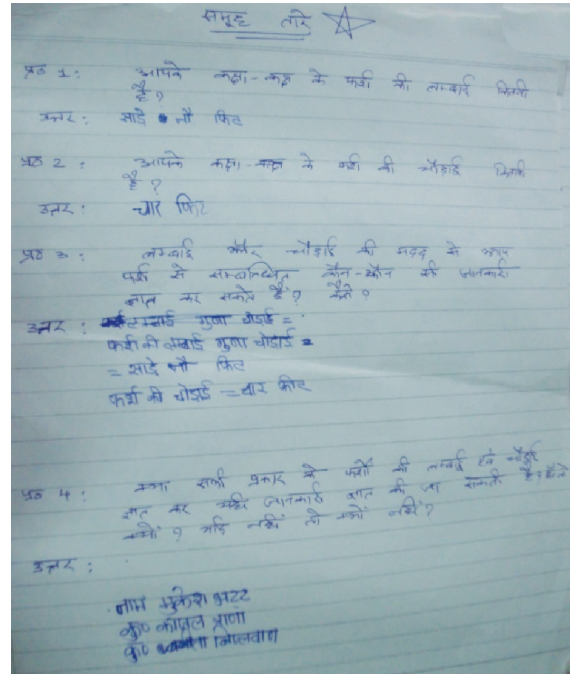 समूह तारे
प्रश्न 1: आपके कक्षा-कक्ष के फर्श की लम्बाई कितनी
है?
उत्तर: साढे नौ फिट
प्रश्न 2: आपके कक्षा-कक्ष के फर्श की चौड़ाई कितनी
है?
उत्तर: चार फिट
प्रश्न 3: लम्बाई और चौड़ाई की मदद से आप
फर्श से सम्बन्धित कौन-कौन सी जानकारी
ज्ञात कर सकते हैं? कैसे?
उत्तर: लम्बाई गुणा चोड़ाई =
फर्श की लम्बाई गुणा चोड़ाई =
= साढे नौ फिट
फर्श की चोड़ाई = चार फीट
प्रश्न 4: क्या सभी प्रकार के फर्शों की लम्बाई एवं चौड़ाई
ज्ञात कर यही जानकारी ज्ञात की जा सकती है?
क्यों? यदि नहीं तो क्यों नहीं?
उत्तर:
नाम मुकेश भट्ट
कु०
कु०